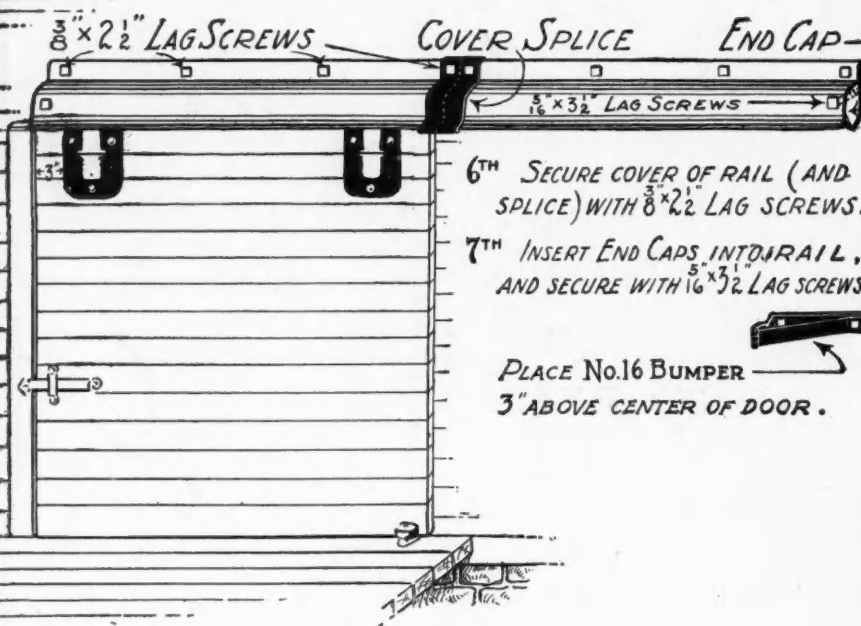 3/8" x 2 1/2" LAG SCREWS
COVER SPLICE
END CAP
5/16" x 3 1/2" LAG SCREWS
3"
6TH SECURE COVER OF RAIL (AND
SPLICE) WITH 3/8" x 2 1/2" LAG SCREWS.
7TH INSERT END CAPS INTO RAIL,
AND SECURE WITH 5/16" x 3 1/2" LAG SCREWS
PLACE No.16 BUMPER
3" ABOVE CENTER OF DOOR.